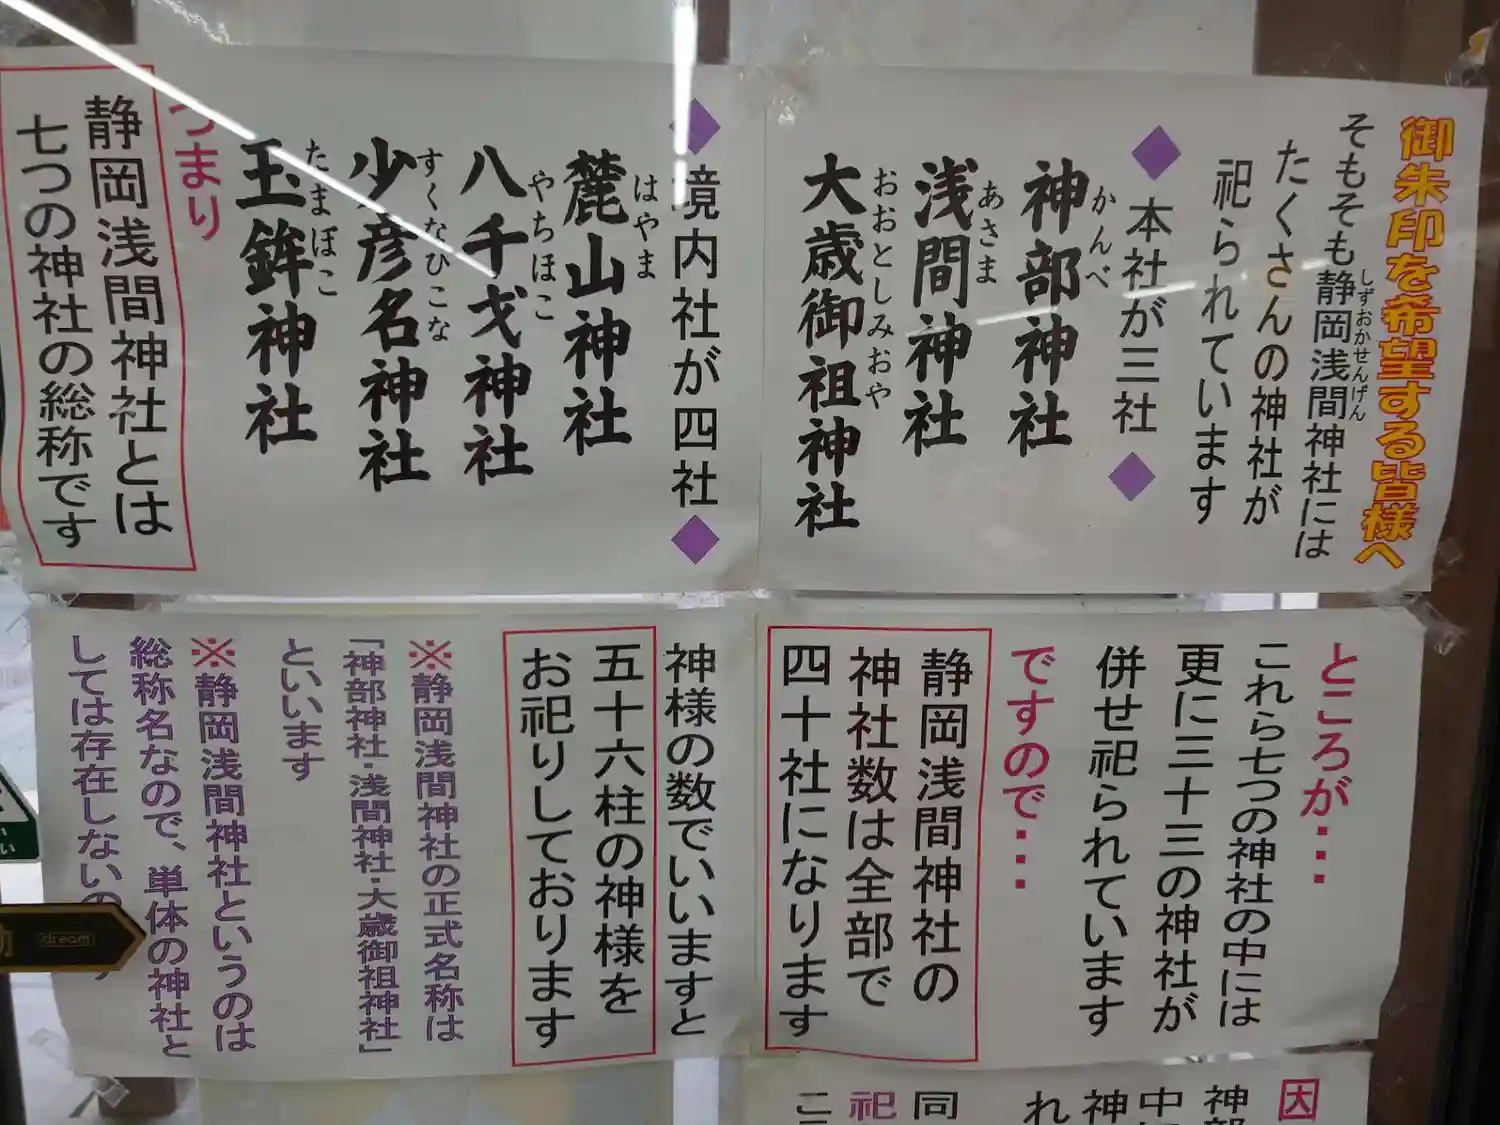 御朱印を希望する皆様へ
そもそも静岡浅間神社には
しずおかせんげん
たくさんの神社が
祀られています
◆本社が三社◆
神部神社
かんべ
浅間神社
あさま
大歳御祖神社
おおとしみおや
◆境内社が四社◆
麓山神社
はやま
八千戈神社
やちほこ
少彦名神社
すくなひこな
玉鉾神社
たまぼこ
つまり
静岡浅間神社とは
七つの神社の総称です
ところが・・・
これら七つの神社の中には
更に三十三の神社が
併せ祀られています
ですので・・・
静岡浅間神社の
神社数は全部で
四十社になります
神様の数でいいますと
五十六柱の神様を
お祀りしております
※静岡浅間神社の正式名称は
「神部神社・浅間神社・大歳御祖神社」
といいます
※静岡浅間神社というのは
総称名なので、単体の神社と
しては存在しないの
dream
因
神部
中
神
れ
同
祀
こ